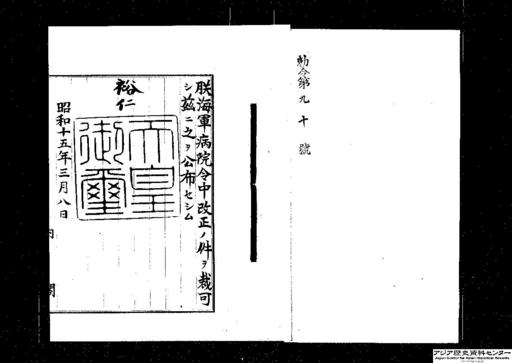 勅令第九十號
朕海軍病院令中改正ノ件ヲ裁可
シ茲ニ之ヲ公布セシム
裕仁
天皇
御璽
昭和十五年三月八日
内
閣
アジア歴史資料センター
Japan Center for Asian Historical Records